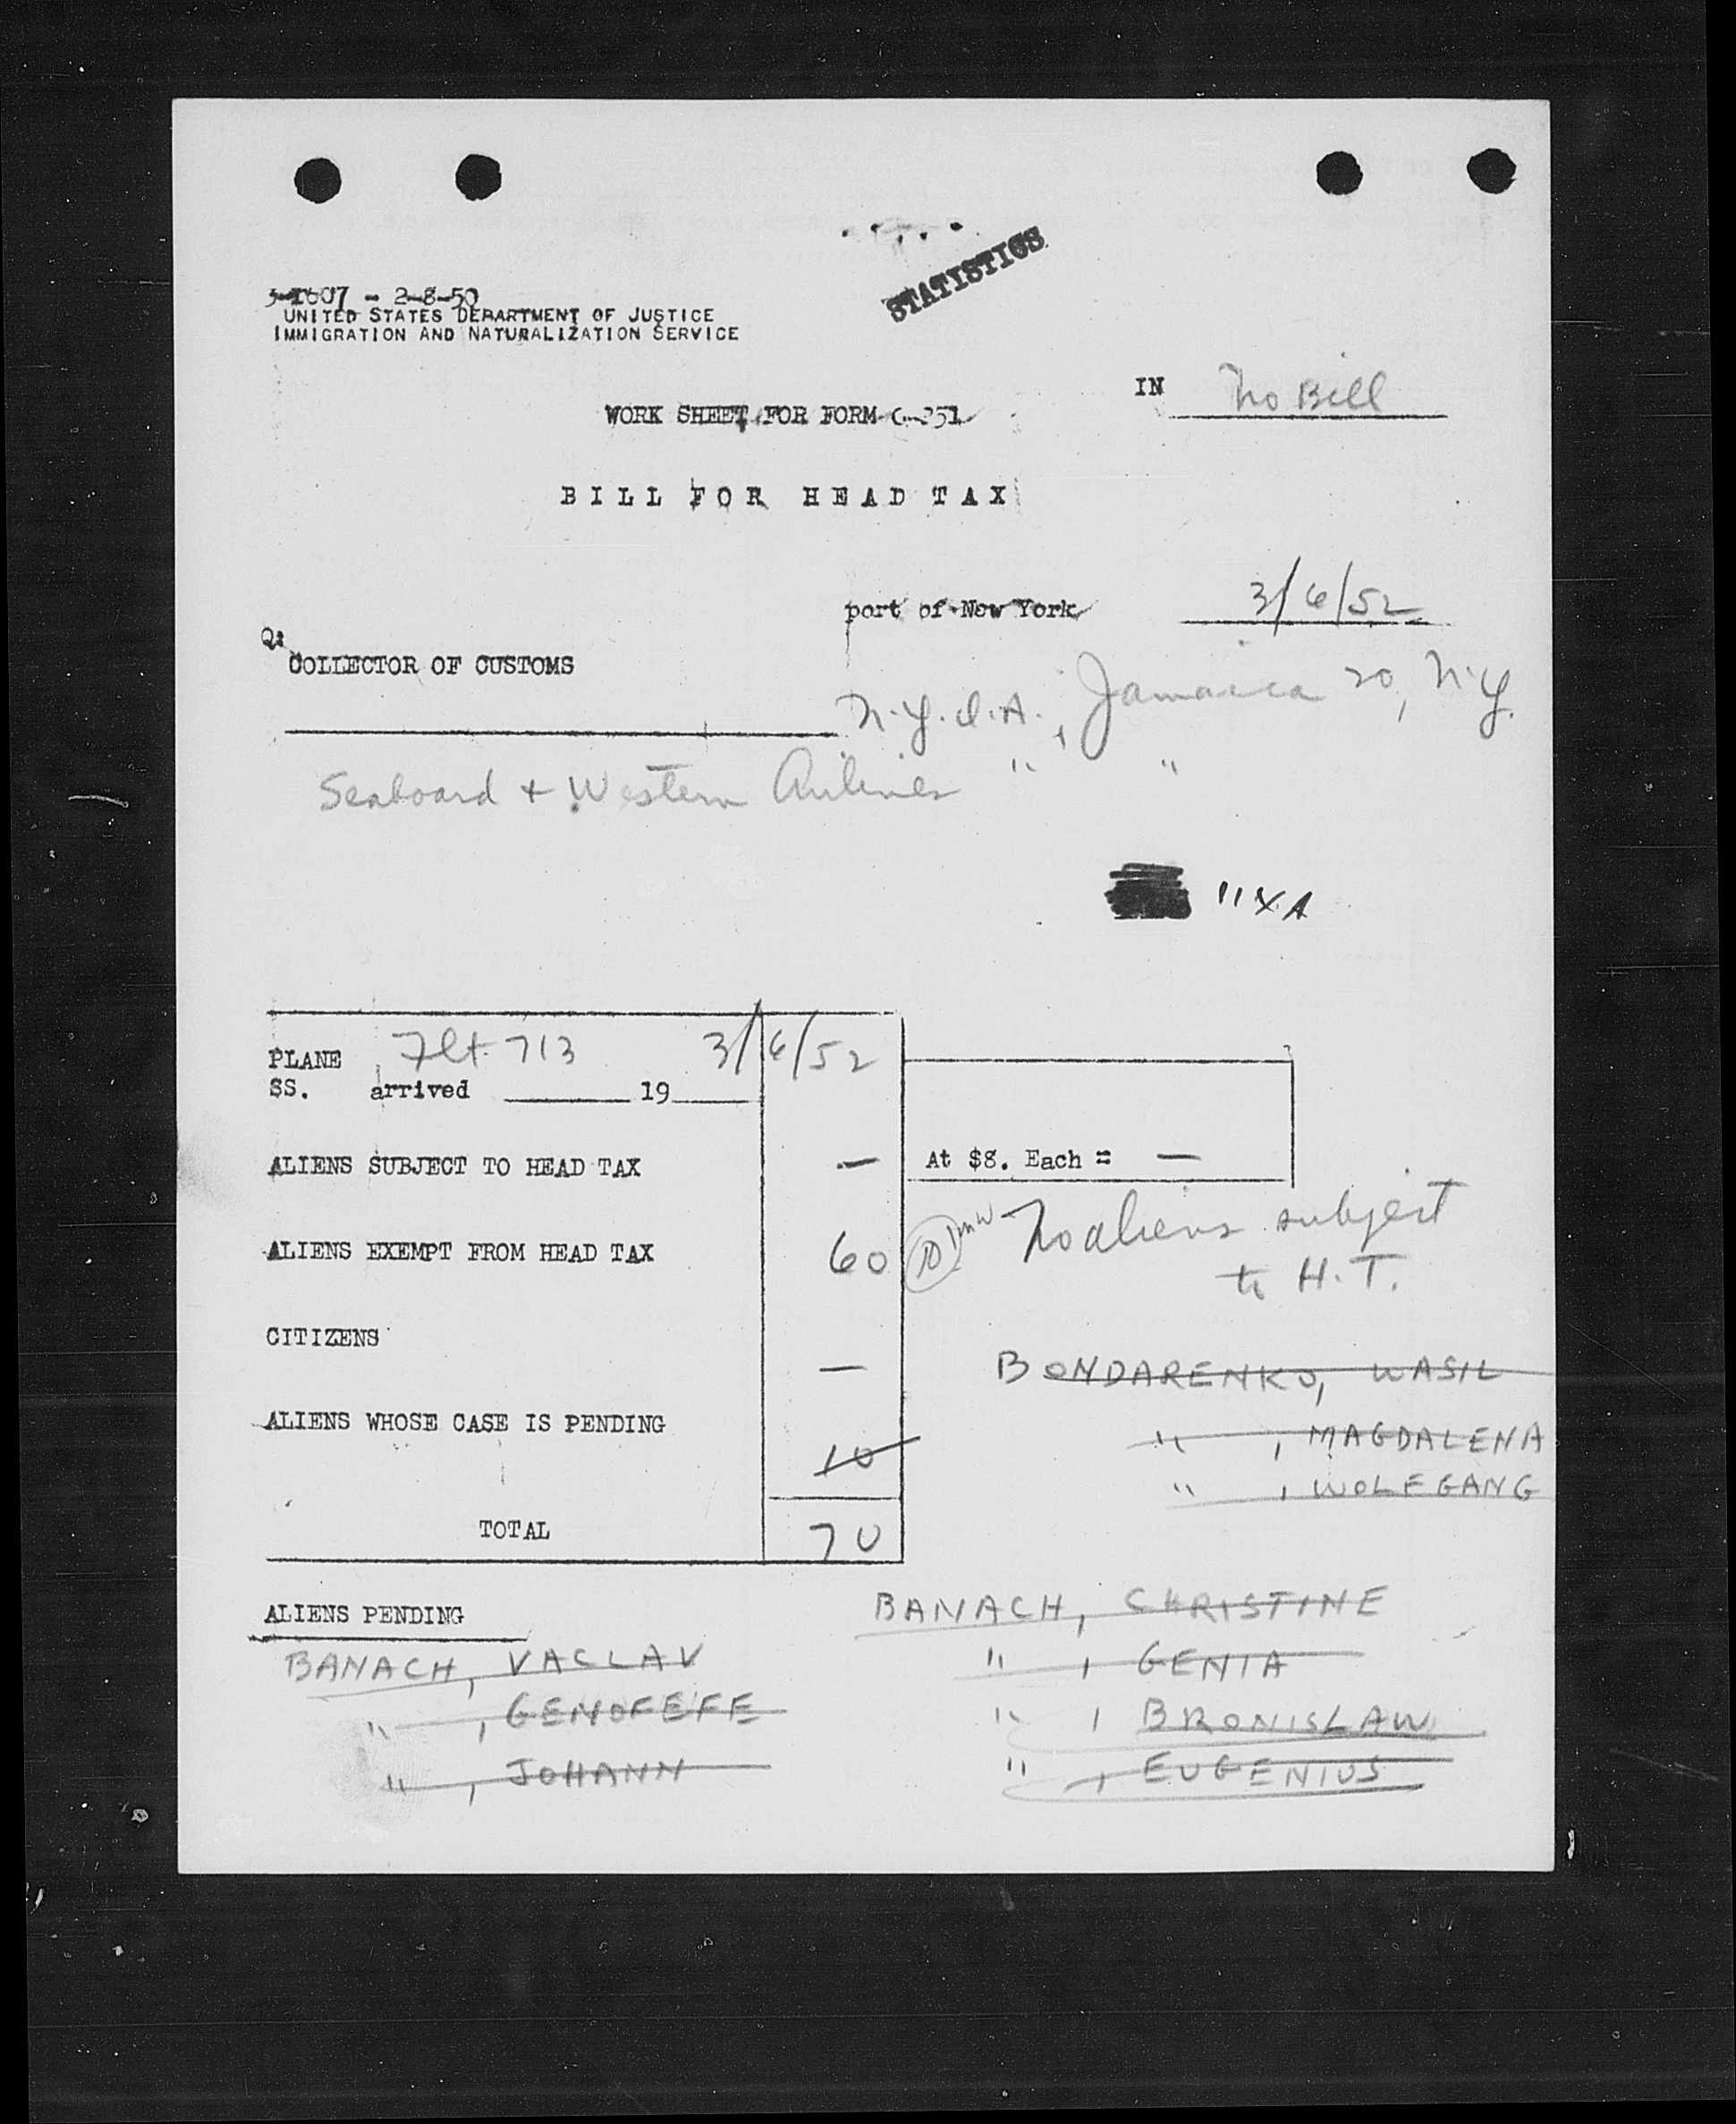 STATISTICS
3-1607 - 2-8-50
UNITED STATES DEPARTMENT OF JUSTICE
IMMIGRATION AND NATURALIZATION SERVICE
IN No Bill
WORK SHEET FOR FORM
BILL FOR HEAD TAX
port of New York 3/6/52
COLLECTOR OF CUSTOMS
N.Y.I.A., Jamaica 20, N.Y.
Seaboard + Western Airlines " "
PLANE Flt. 713 3/6/52
SS. arrived 19
ALIENS SUBJECT TO HEAD TAX — At $8. Each = —
ALIENS EXEMPT FROM HEAD TAX 60 70 No aliens subject
to H.T.
CITIZENS —
BONDARENKO, WASIL
ALIENS WHOSE CASE IS PENDING 10
" , MAGDALENA
" , WOLFGANG
TOTAL 70
ALIENS PENDING
BANACH, VACLAV
" , GENOFEFE
" , JOHANN
BANACH, CHRISTINE
" , GENIA
" , BRONISLAW
" , EUGENIUS